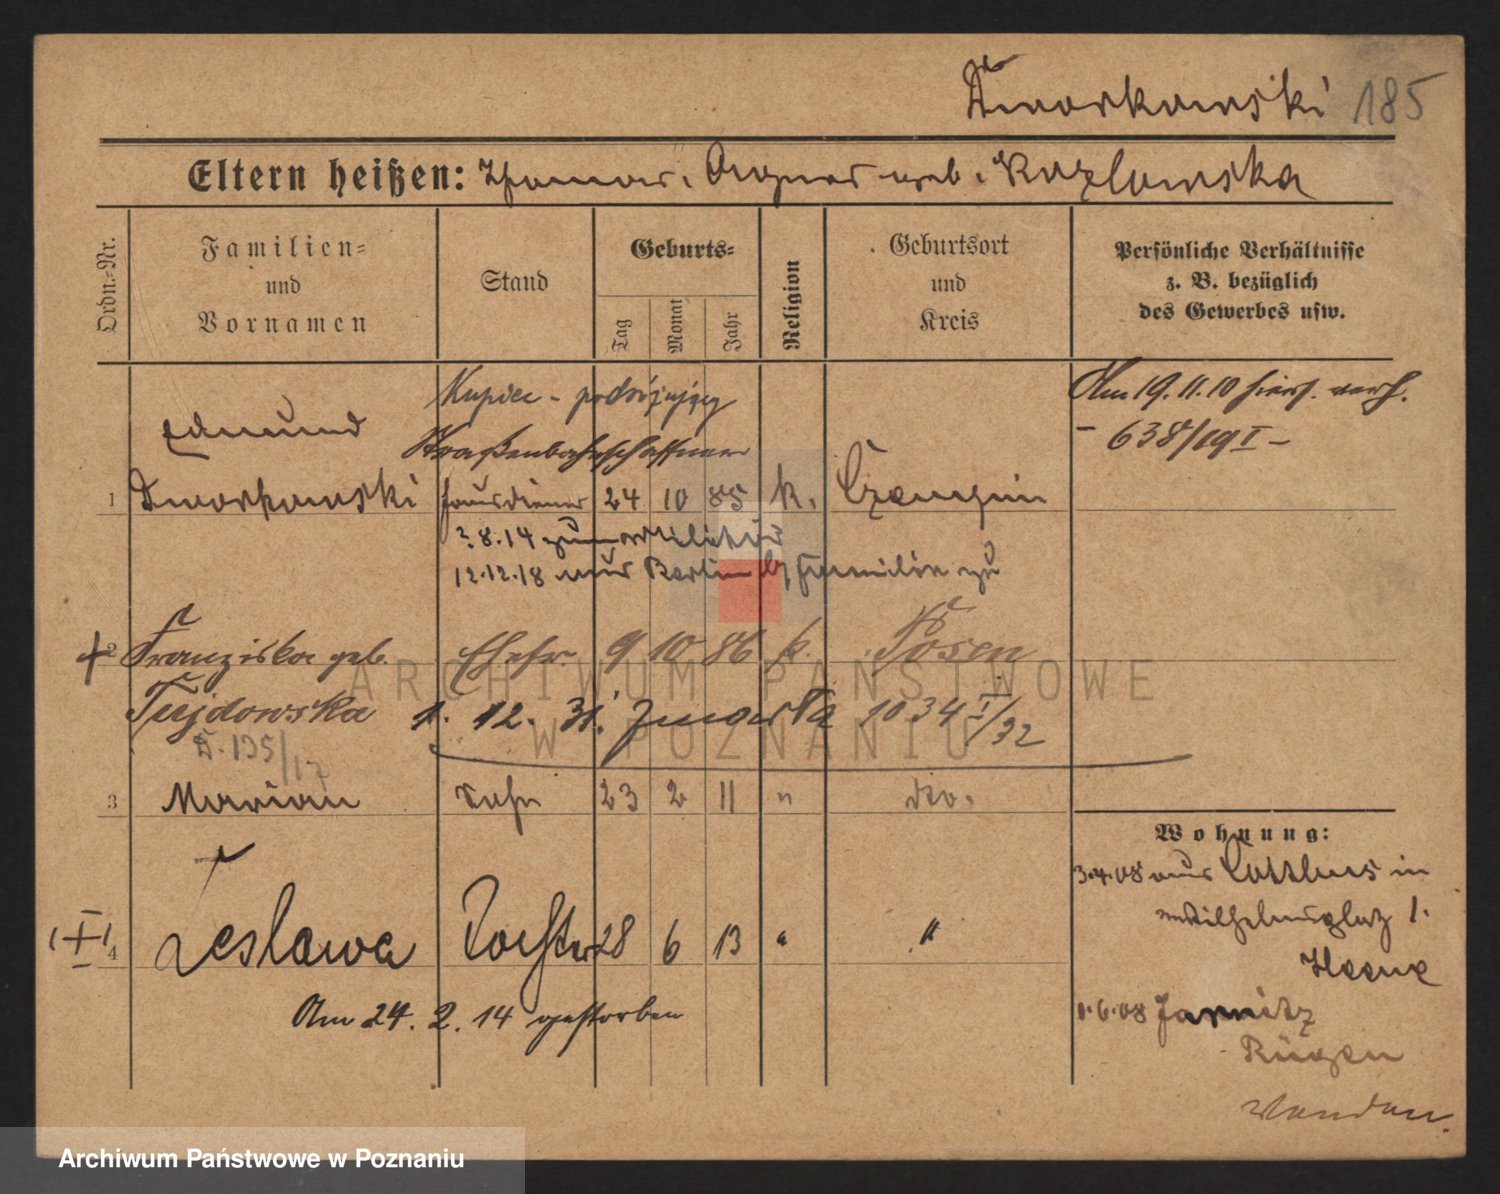 Dworkowski 185
Eltern heißen: Thomas. Agnes geb. Kozlowska
Ordn.-Nr.
Familien-
und
Vornamen
Stand
Geburts-
Tag
Monat
Jahr
Religion
Geburtsort
und
Kreis
Persönliche Verhältnisse
z. B. bezüglich
des Gewerbes usw.
Kupiec - podróżujący
Am 19.11.10 hier verh.
- 638/19 I -
Edmund
Straßenbahnschaffner
1 Dworkowski Hausdiener 24 10 85 k. Czempin
2.8.14 zum Militär
12.12.18 aus Berlin Familie zu
+ 2 Franziska geb. Ehefr. 9 10 86 k. Posen
1. 12. 31. 1034 I/32
D. 135/17
3 Marian Sohn 23 2 11 " dto.
Wohnung:
3.4.08 aus Cottbus in
Wilhelmsplatz 1.
4 Czeslawa Tochter 28 6 13 " "
Am 24. 2. 14 gestorben
1.6.08 Jasmitz
Rügen
ARCHIWUM PAŃSTWOWE
W POZNANIU
Archiwum Państwowe w Poznaniu